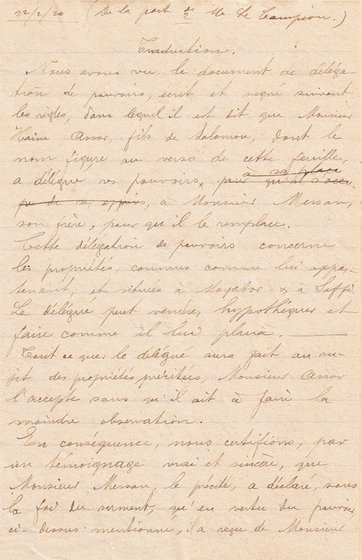 22/2/20 (De la part de Mr Le Campion.)
Traduction.
Nous avons vu le document de déléga
tion de pouvoirs, écrit et signé suivant
les règles, dans lequel il est dit que Monsieur
Haim Assor, fils de Salomon, dont le
nom figure au verso de cette feuille,
a délégué ses pouvoirs, pour qu'il
à sa place
, à Monsieur Messan,
son frère, pour qu'il le remplace.
Cette délégation de pouvoirs concerne
les propriétés, connues comme lui appar
tenant, et situées à Mogador & à Saffi.
Le délégué peut vendre, hypothéquer et
faire comme il lui plaira.
Tout ce que le délégué aura fait au su-
jet des propriétés précitées, Monsieur Assor
l'accepte sans qu'il ait à faire la
moindre observation.
En conséquence, nous certifions, par
un témoignage vrai et sincère, que
Monsieur Messan, le précité, a déclaré, sous
la foi du serment, qu'en vertu du pouvoir
ci-dessus mentionné, il a reçu de Monsieur